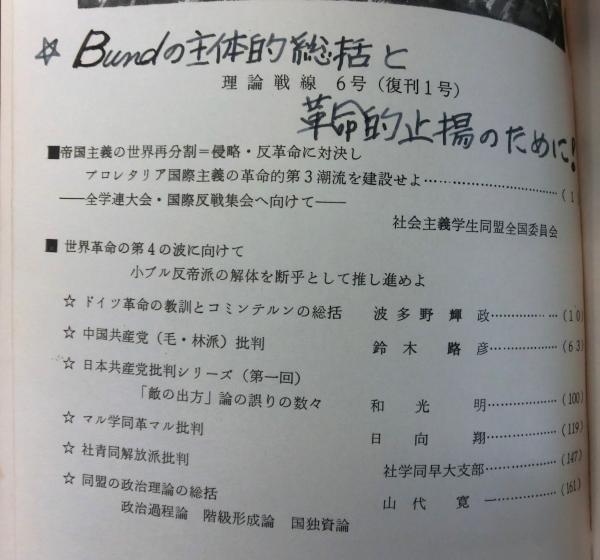 ☆ Bundの主体的総括と
理論戦線 6号(復刊1号)
革命的止揚のために!
■帝国主義の世界再分割=侵略・反革命に対決し
プロレタリア国際主義の革命的第3潮流を建設せよ…………………………(1)
——全学連大会・国際反戦集会へ向けて——
社会主義学生同盟全国委員会
■ 世界革命の第4の波に向けて
小ブル反帝派の解体を断乎として推し進めよ
☆ ドイツ革命の教訓とコミンテルンの総括 波多野輝政……………(10)
☆ 中国共産党(毛・林派)批判 鈴木路彦……………(63)
☆ 日本共産党批判シリーズ(第一回)
「敵の出方」論の誤りの数々 和光明……………(100)
☆ マル学同革マル批判 日向翔……………(119)
☆ 社青同解放派批判 社学同早大支部……………(147)
☆ 同盟の政治理論の総括 山代寛一……………(161)
政治過程論 階級形成論 国独資論